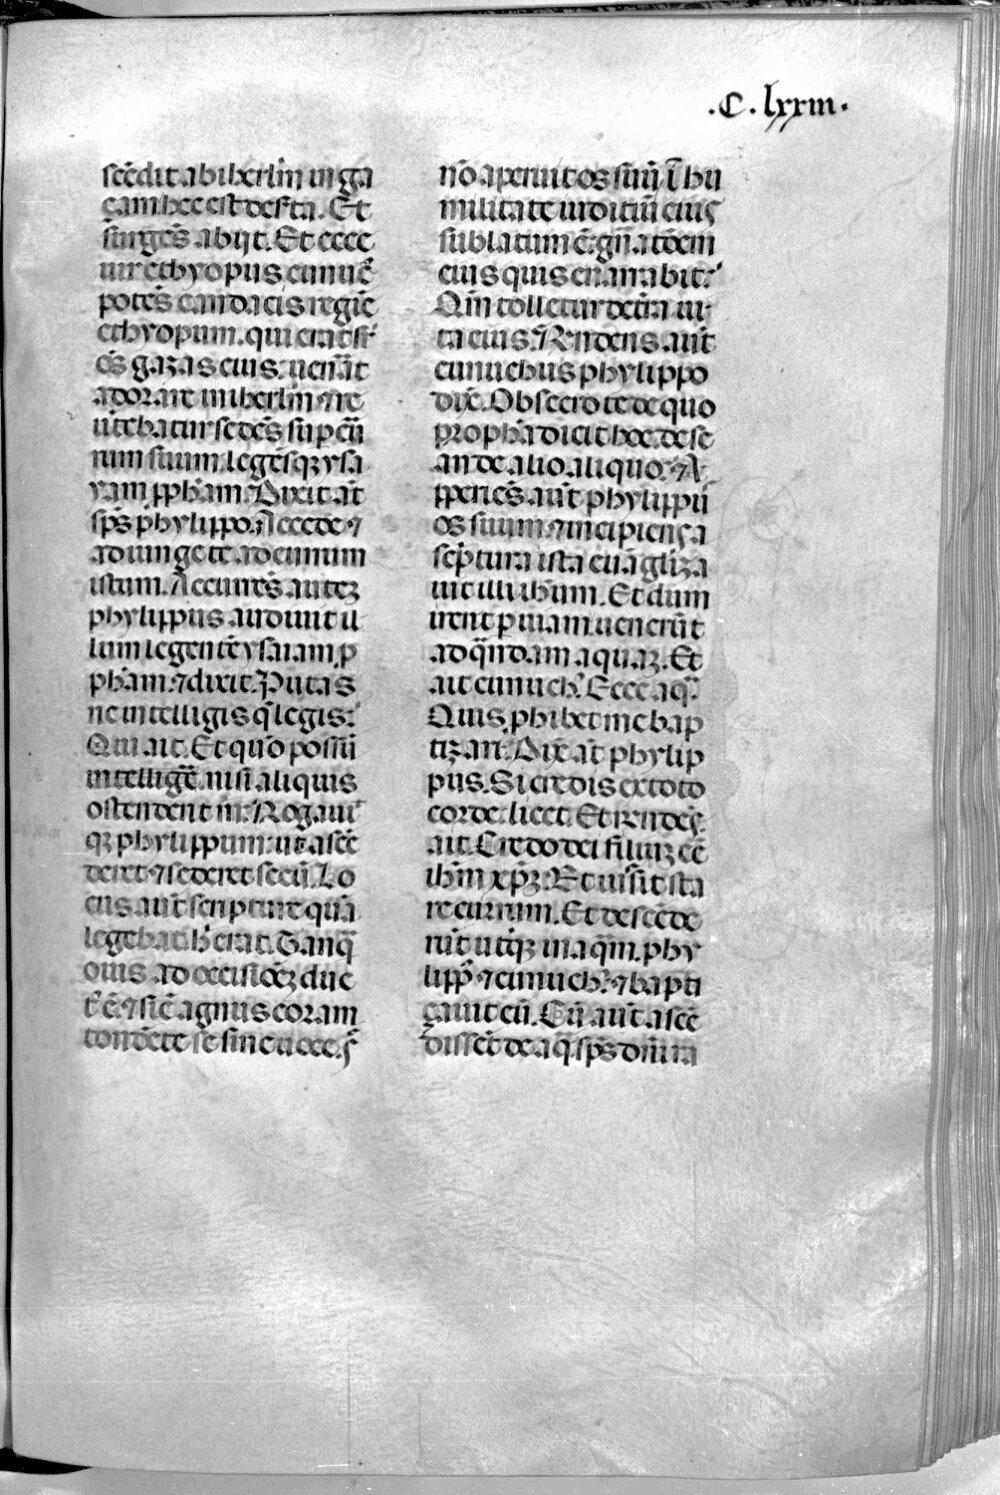 .C.lxxiii.
scẽdit ab iherlm̃ in ga
çam hec est dẽsta. Et
surgẽs abijt. Et ecce
uir ethyopus eunuc̃
potẽs candacis regiẽ
ethyopum. qui erat
os gazas eius: uen̾at
adorare in iherlm̃ ⁊ re
ũtebatur sedẽs sup̱ cũ
rum suum. legẽsqꝫ ysa
yam ꝓpħam. Dixit aũt
sp̃s phylippo. Accede ⁊
adiunge te ad currum
istum. Accurrẽs autẽꝫ
phylippus audiuit il
lum legentẽ ysaiam ꝓ
pħam. ⁊ dixit. Putas
ne intelligis q̃ legis:
Qui ait. Et quõ possũ
intelligẽ. nisi aliquis
ostenderit m̾. Rogauit
qꝫ phylippum: ut ascẽ
deret ⁊ sederet secũ. Lo
cus aũt scripture quã
legebat h̾ erat. Tanq̃
ouis ad occisiõꝫ duc
t̾ ẽ. ⁊ sic̃ agnus coram
tondẽte se sine uoce. ſ̾
nõ aperuit os suũ ĩ hu
militate iudiciũ eiuς
sublatum ẽ. gñatõem
eius quis enarrabit:
Qm̃ tolletur de tr̃a ui
ta eius. R̃ndens aũt
eunuchus phylippo
dix̃. Obsecro te de quo
propħa dicit hoc. de se
an de alio aliquo. A
pperiẽs aũt phylippꝰ
os suum. ⁊ incipiens a
scp̃tura ista euãgliza
uit illi iħum. Et dum
irent p̱ uiam uenerũt
ad q̃ndam aquaꝫ. Et
ait eunuchꝰ. Ecce aq̃.
Quis ꝓhibet me bap
tizari. Dix̃ aũt phylip
pus. Si credis ex toto
corde. licet. Et r̃ndẽs.
ait. Credo dei filiuꝫ eẽ
iħm xp̃ꝫ. Et iussit sta
re currum. Et descẽde
rũt uterqꝫ in aq̃m. phy
lippꝰ ⁊ eunuchꝰ. ⁊ bapti
çauit eũ. Cũ aũt ascẽ
dissẽt de aq̃. sp̃s dñi ra